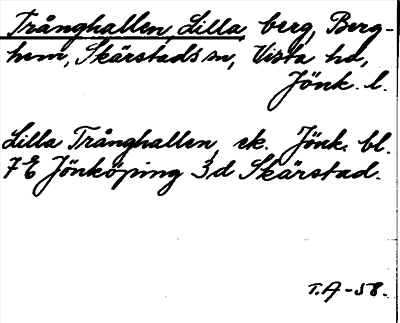 Trånghallen, Lilla berg, Berg-
hem, Skärstads sn, Vista hd,
Jönk. l.
Lilla Trånghallen, ek. Jönk. bl.
7E Jönköping 3d Skärstad.
T.A-58.